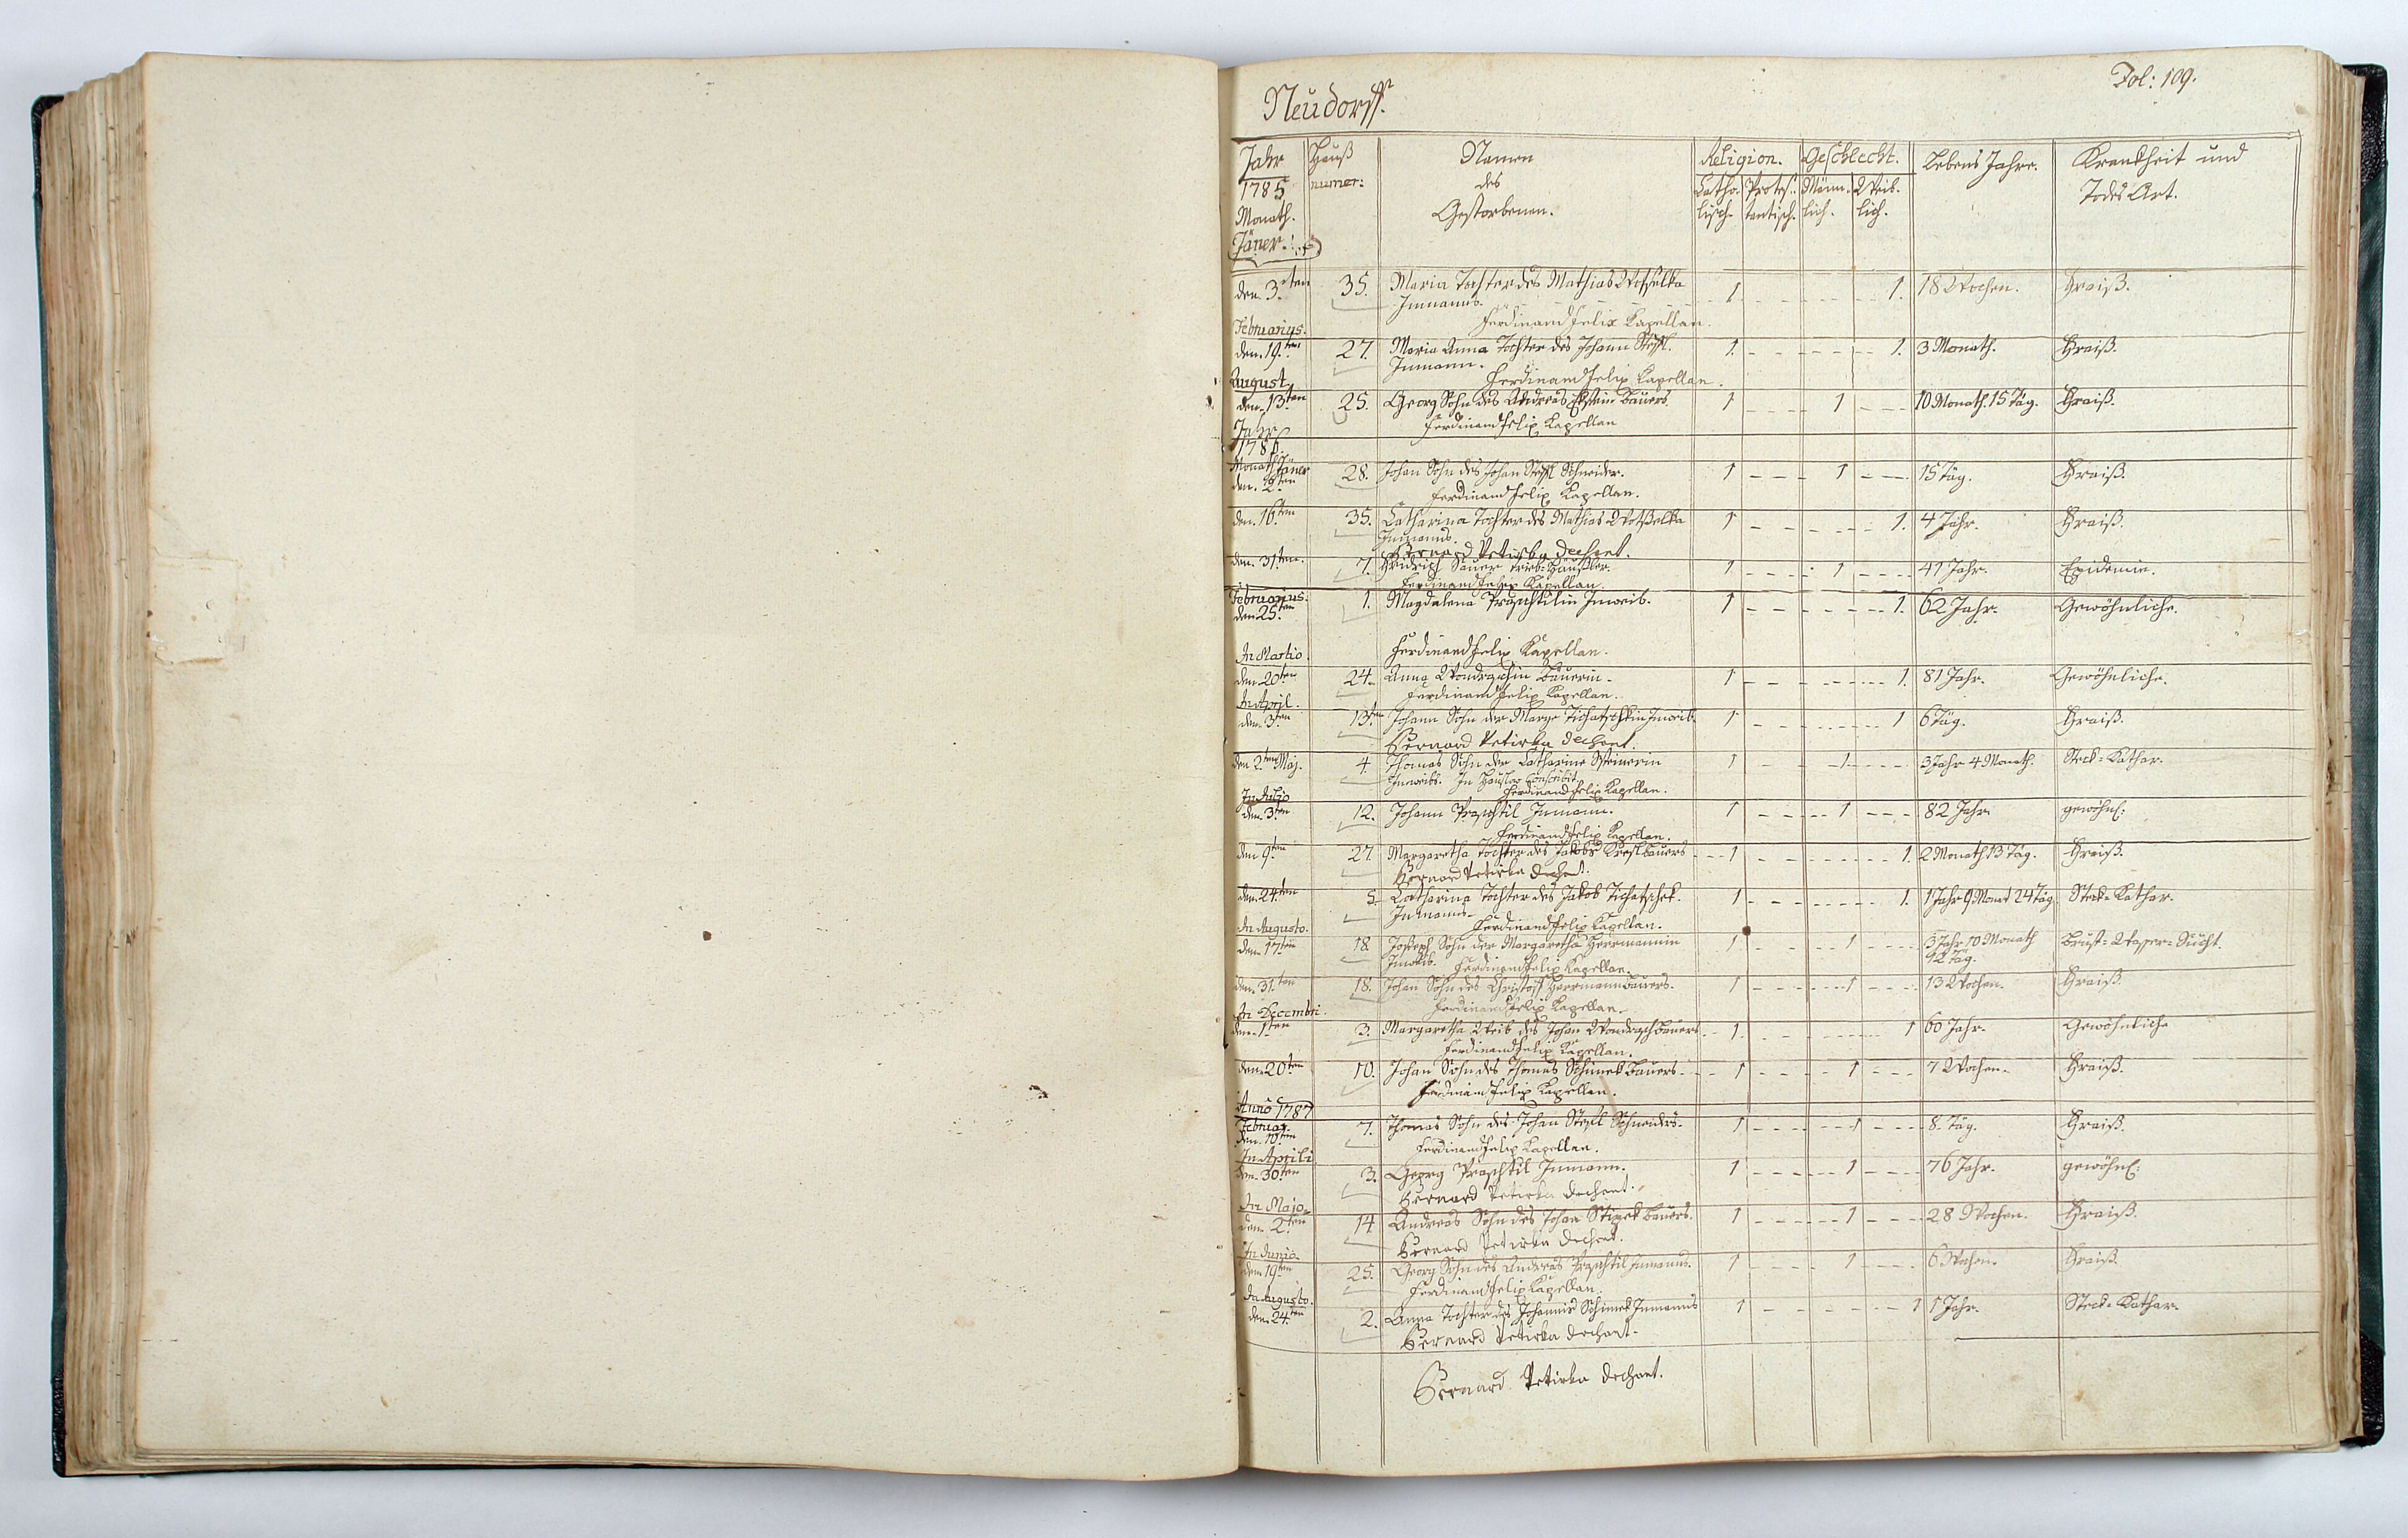 Fol: 109.
Neudorff.
Jahr 1785 Monath. Jäner. Hauß numer: Namen des Gestorbenen. Religion. Catholisch. Protestantisch. Geschlecht. Männlich. Weiblich. Lebens Jahre. Krankheit und Todes Art.
den 3.ten 35. Maria Tochter des Mathias Wotselka 1. 1. 18 Wochen. Fraiß.
Inmanns.
Ferdinand Felix Kapellan.
Februarius.
den 19.ten 27. Maria Anna Tochter des Johann Stefl. 1. 1. 3 Monath. Fraiß.
Inmann.
Ferdinand Felix Kapellan.
August
den 13.ten 25. Georg Sohn des Andreas Bauers. 1 1 10 Monath. 15 Täg. Fraiß.
Ferdinand Felix Kapellan
Jahr
1786
Monath Jäner
den 2.ten 28. Johan Sohn des Johan Stefl Schneider. 1 1 15 Täg. Fraiß.
Ferdinand Felix Kapellan.
den 16.ten 35. Catharina Tochter des Mathias Wotßelka 1 1. 4 Jahr. Fraiß.
Inmanns.
Bernard Petirka Dechant.
den 31.ten 7. Fridrich Sauer Häußler. 1 1 41 Jahr. Epidemie.
Ferdinand Felix Kapellan.
Februarius.
den 25.ten 1. Magdalena Praschtilin Inweib. 1 1. 62 Jahr. Gewöhnliche.
Ferdinand Felix Kapellan.
In Martio.
den 20.ten 24. Anna Wondraschin Bäuerin. 1 1. 81 Jahr. Gewöhnliche.
Ferdinand Felix Kapellan.
In April.
den 3.ten 13.ten Johann Sohn der Marye Tichatschkin Inweib. 1 1 6 Täg. Fraiß.
Bernard Petirka Dechant.
den 2.ten Maj. 4. Thomas Sohn der Catharina Steinerin 1 1 3 Jahr 4 Monath. Steck-Kathar.
Inweibs. In Häusler Conscribit.
Ferdinand Felix Kapellan.
In Julio
den 3.ten 12. Johann Praschtil Inmann. 1 1 82 Jahr. gewöhnl:
Ferdinand Felix Kapellan.
den 9.ten 27 Margaretha Tochter des Jakobs Bauers 1 1. 2 Monath 13 Täg. Fraiß.
Bernard Petirka Dechant.
den 24.ten 5. Catharina Tochter des Jakob Tichatschek. 1 1. 1 Jahr 9 Monat 24 Täg. Steck-Kathar.
Inmanns.
Ferdinand Felix Kapellan.
In Augusto.
den 17.ten 18 Joseph Sohn der Margaretha Herrmannin 1 1 5 Jahr 10 Monath Brust-Wasser-Sucht.
Inweib. Ferdinand Felix Kapellan. 12 Täg.
den 31.ten 18. Johan Sohn des Christoff Herrmann Bauers. 1 1 13 Wochen. Fraiß.
Ferdinand Felix Kapellan.
In Decembri.
den 1.ten 3. Margaretha Weib des Johan Wondrasch Bauers 1. 1 60 Jahr. Gewöhnliche
Ferdinand Felix Kapellan.
den 20.ten 10. Johan Sohn des Thomas Schimek Bauers. 1 1 7 Wochen. Fraiß.
Ferdinand Felix Kapellan.
Anno 1787
Februar.
den 10.ten 7. Thomas Sohn des Johan Stefl Schneiders. 1 1 8. Täg. Fraiß.
Ferdinand Felix Kapellan.
In Aprili
den 30.ten 3. Georg Praschtil Inmann. 1 1 76 Jahr. gewöhnl:
Bernard Petirka Dechant.
In Majo.
den 2.ten 14 Andreas Sohn des Johan Stipek Bauers. 1 1 28 Wochen. Fraiß.
Bernard Petirka Dechant.
In Junio.
den 19.ten 25. Georg Sohn des Andreas Praschtil Inmanns. 1 1 6 Wochen. Fraiß.
Ferdinand Felix Kapellan.
In Augusto.
den 24.ten 2. Anna Tochter des Johannis Schimek Inmanns 1 1 1 Jahr. Steck-Kathar.
Bernard Petirka Dechant.
Bernard Petirka Dechant.